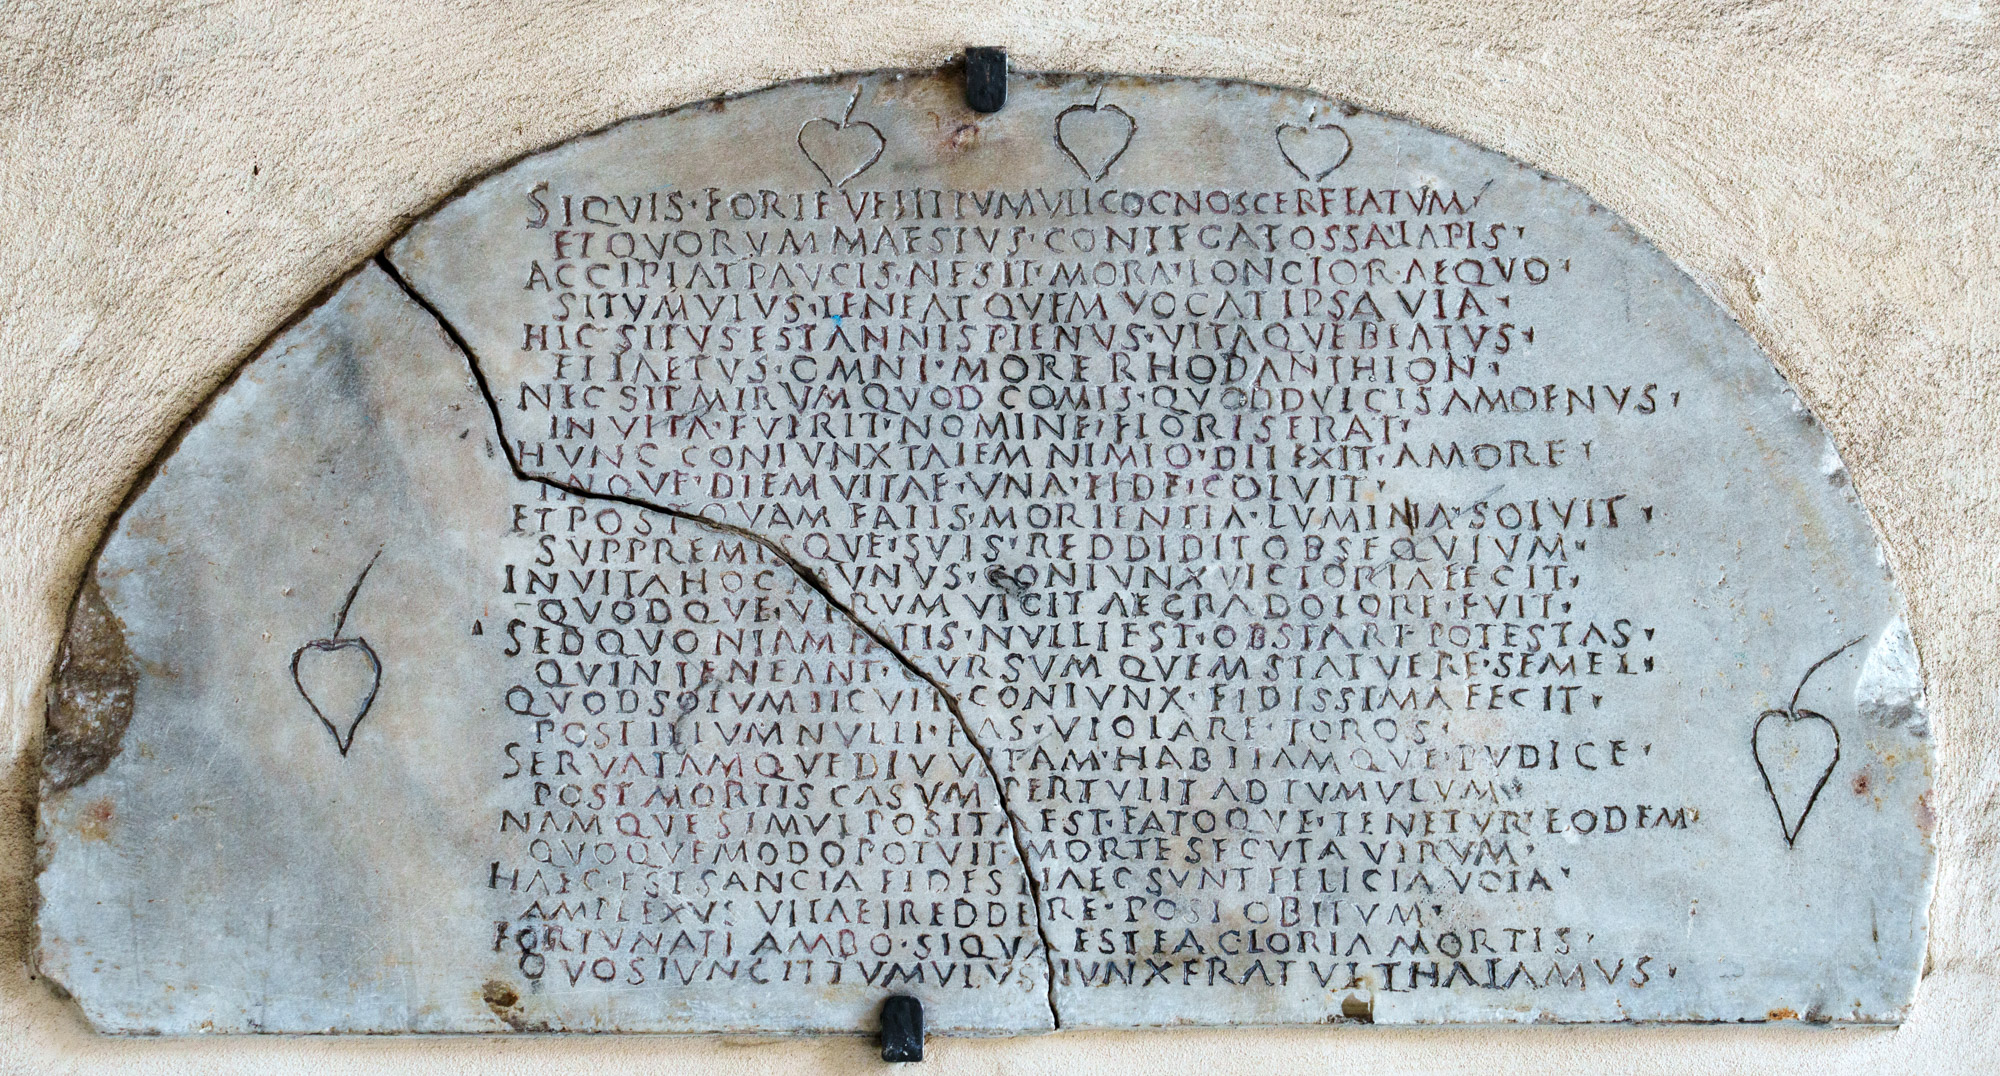 SIQVIS·FORTE VELIT TVMVLI COGNOSCERE FATVM
ET QVORVM MAESTVS·CONTEGAT OSSA·LAPIS·
ACCIPIAT PAVCIS·NE SIT·MORA·LONGIOR·AEQVO·
SI TVMVLVS·TENEAT QVEM VOCAT IPSA VIA·
HIC·SITVS EST ANNIS PLENVS·VITAQVE BEATVS·
ET LAETVS·OMNI·MORE RHODANTHION·
NEC SIT MIRVM QVOD COMIS·QVOD DVLCIS AMOENVS·
IN VITA·FVERIT·NOMINE·FLORIS ERAT·
HVNC CONIVNX TALEM NIMIO·DILEXIT·AMORE·
INQVE·DIEM VITAE·VNA·FIDE·COLVIT·
ET POSTQVAM FATIS·MORIENTIA·LVMINA·SOLVIT·
SVPPREMISQVE·SVIS·REDDIDIT OBSEQVIVM·
IN VITA HOC MVNVS·CONIVNX VICTORIA FECIT·
QVODQVE·VIRVM VICIT AEGRA DOLORE·FVIT·
SED QVONIAM FATIS·NVLLI EST·OBSTARE POTESTAS·
QVIN TENEANT·CVRSVM QVEM STATVERE·SEMEL·
QVOD SOLVM LICVIT·CONIVNX·FIDISSIMA FECIT·
POST ILLVM NVLLI·FAS·VIOLARE·TOROS·
SERVATAMQVE DIV VITAM·HABITAMQVE·PVDICE·
POST MORTIS CASVM PERTVLIT AD TVMVLVM·
NAMQVE SIMVL POSITA EST·FATOQVE·TENETVR·EODEM·
QVOQVE MODO POTVIT·MORTE SECVTA VIRVM·
HAEC·EST SANCTA FIDES HAEC SVNT FELICIA VOTA·
AMPLEXVS VITAE REDDERE·POST OBITVM·
FORTVNATI AMBO·SIQVA EST EA GLORIA MORTIS·
QVOS IVNGIT TVMVLVS IVNXERAT VT THALAMVS·